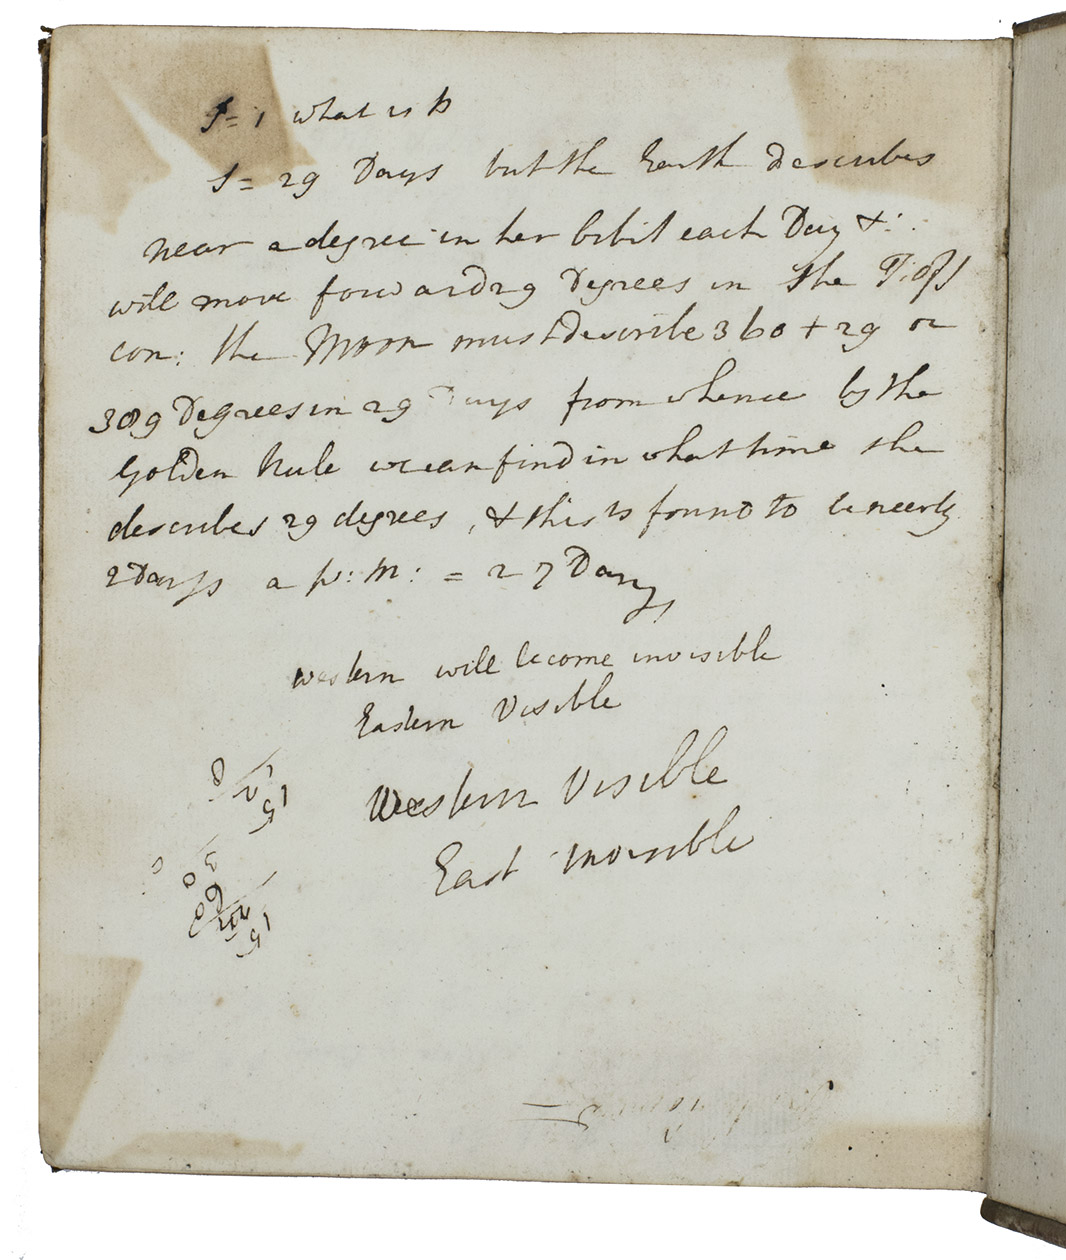 S = 1 what is p
S = 29 Days but the Earth describes
near a degree in her Orbit each Day &:
will move forward 29 Degrees in the
con: the Moon must describe 360 + 29 or
389 Degrees in 29 Days from whence by the
Golden Rule we can find in what time she
describes 29 degrees, & this is found to be neerly
2 Days a p: m: = 27 Days
Western will become invisible
Eastern Visible
Western Visible
East invisible